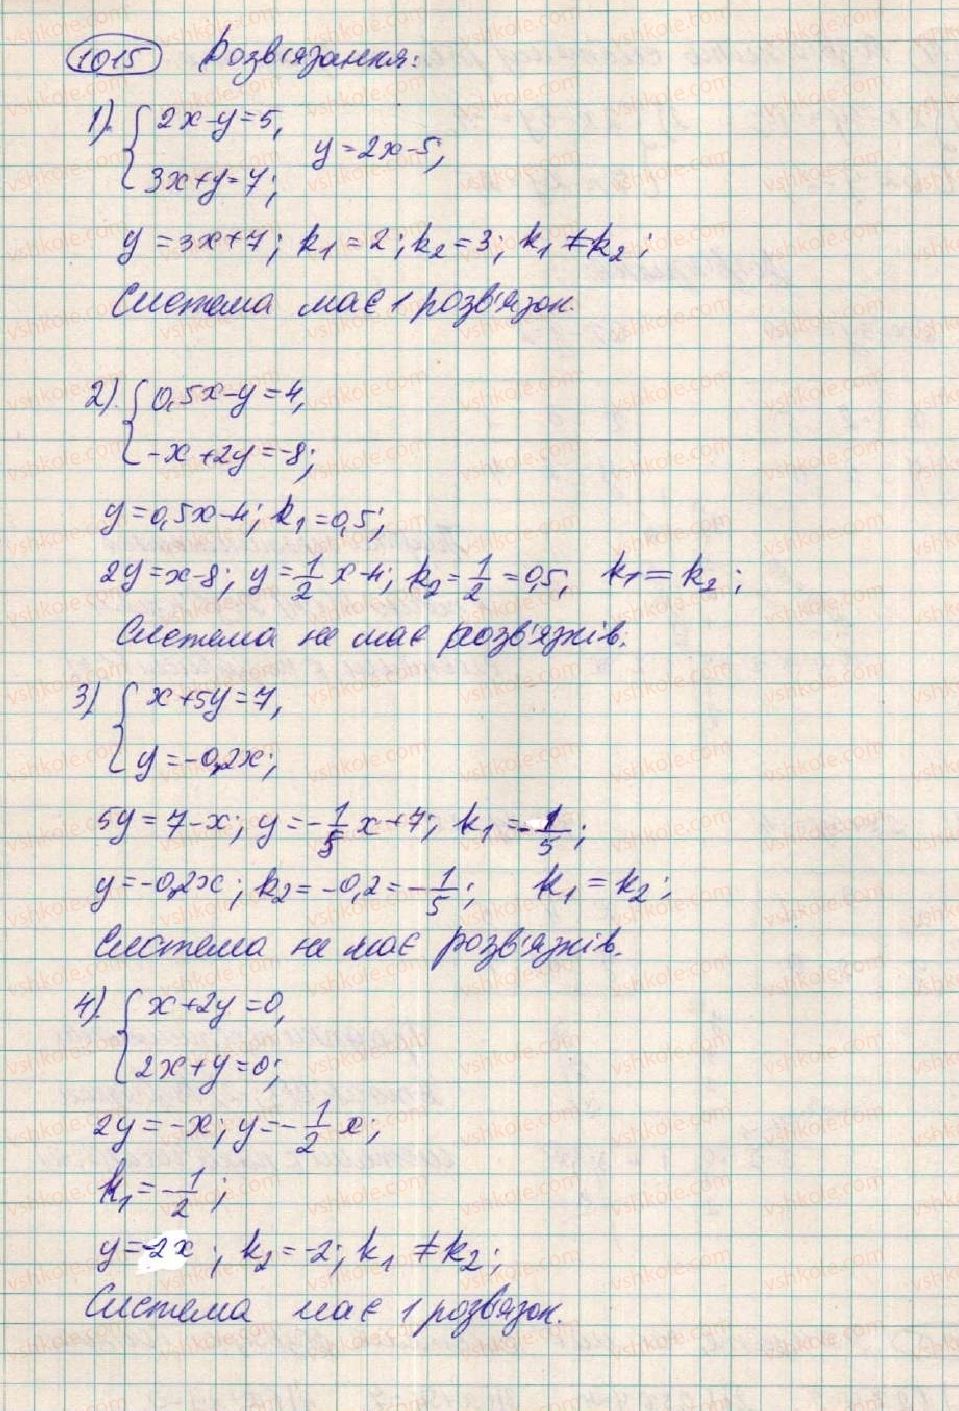 1015 Розв'язання:
1). { 2x-y=5,
3x+y=7; y=2x-5;
y=3x+7; k₁=2; k₂=3; k₁≠k₂;
Система має 1 розв'язок.
2). { 0,5x-y=4,
-x+2y=-8;
y=0,5x-4; k₁=0,5;
2y=x-8; y=1/2 x-4; k₂=1/2=0,5, k₁=k₂;
Система не має розв'язків.
3) { x+5y=7,
y=-0,2x;
5y=7-x; y=-1/5 x+7; k₁=-1/5;
y=-0,2x; k₂=-0,2=-1/5; k₁=k₂;
Система не має розв'язків.
4). { x+2y=0,
2x+y=0;
2y=-x; y=-1/2 x;
k₁=-1/2;
y=-2x; k₂=-2; k₁≠k₂;
Система має 1 розв'язок.